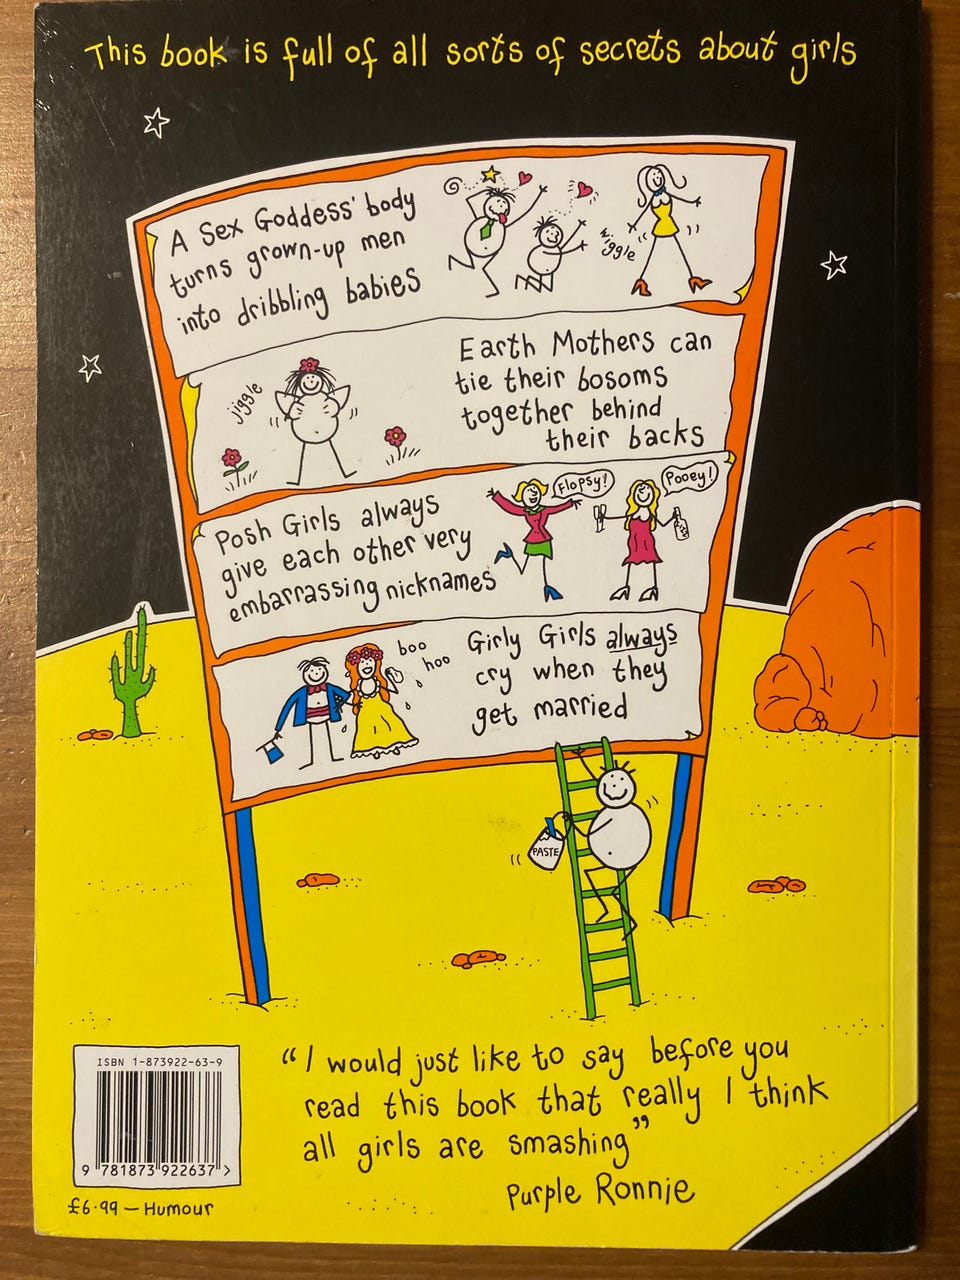 This book is full of all sorts of secrets about girls
A Sex Goddess' body
turns grown-up men
into dribbling babies
wiggle
jiggle
Earth Mothers can
tie their bosoms
together behind
their backs
Posh Girls always
give each other very
embarrassing nicknames
Flopsy!
Pooey!
boo
hoo
Girly Girls always
cry when they
get married
PASTE
"I would just like to say before you
read this book that really I think
all girls are smashing"
Purple Ronnie
ISBN 1-873922-63-9
9 781873 922637 >
£6·99 – Humour